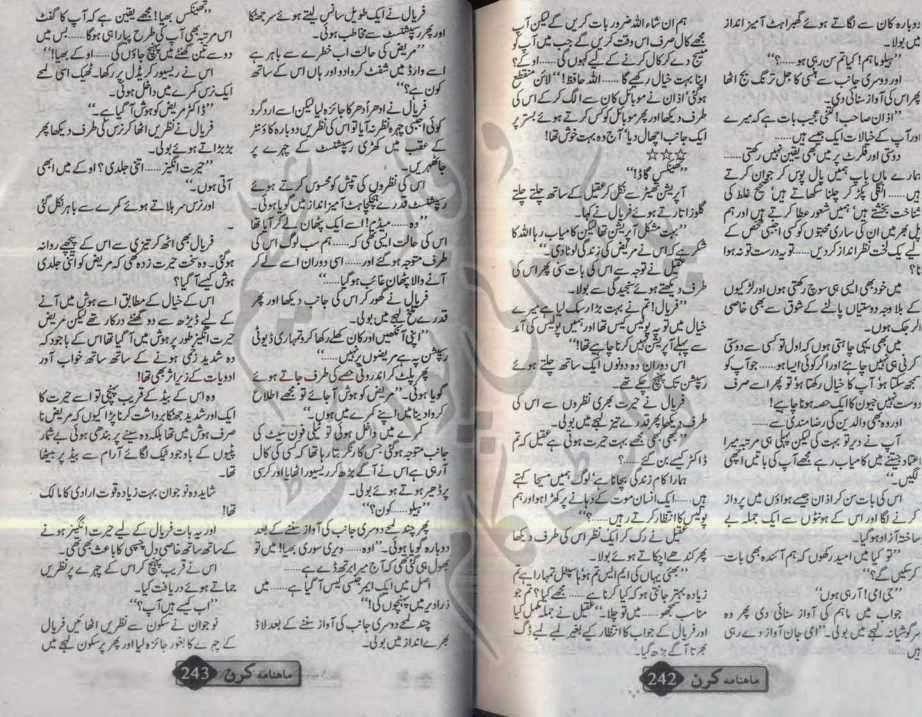 دوبارہ کان سے لگاتے ہوئے گھبراہٹ آمیز انداز
میں بولا۔
”ہیلو ماہم! کیا تم سن رہی ہو.....؟“
اور دوسری جانب سے ہنسی کا جل ترنگ بج اٹھا
پھر اس کی آواز سنائی دی۔
”اذان صاحب! کتنی عجیب بات ہے کہ میرے
اور آپ کے خیالات ایک جیسے ہیں.....
دوستی اور فلرٹ پر میں بھی یقین نہیں رکھتی.....
ہمارے ماں باپ ہمیں پال پوس کر جوان کرتے
ہیں..... انگلی پکڑ کر چلنا سکھاتے ہیں صحیح غلط کی
شناخت بخشتے ہیں ہمیں شعور عطا کرتے ہیں اور ہم
پل بھر میں ان کی ساری محبتوں کو کسی اجنبی شخص کے
لیے یک لخت نظر انداز کردیں..... تو یہ درست تو نہ ہوا
میں خود بھی ایسی ہی سوچ رکھتی ہوں اور لڑکیوں
کے بلاوجہ دوستیاں پالنے کے شوق سے بھی خاصی
الرجک ہوں۔
میں بھی یہی چاہتی ہوں کہ اول تو کسی سے دوستی
کرنی ہی نہیں چاہئے اور اگر کوئی ایسا ہو..... جو آپ کو
سمجھ سکتا ہو‘ آپ کا خیال رکھتا ہو‘ تو پھر اسے صرف
دوست نہیں جیون کا ایک حصہ ہونا چاہیے!
اور وہ بھی والدین کی رضامندی سے.....
آپ نے دیر تو بہت کی لیکن پہلی ہی مرتبہ میرا
اعتماد جیتنے میں کامیاب رہے مجھے آپ کی باتیں اچھی
لگیں۔“
اس کی بات سن کر اذان جیسے ہواؤں میں پرواز
کرنے لگا اور اس کے ہونٹوں سے ایک جملہ بے
ساختہ آزاد ہوگیا۔
”تو کیا میں امید رکھوں کہ ہم آئندہ بھی بات
کر سکیں گے؟“
”جی امی! آرہی ہوں“
جواب میں ماہم کی آواز سنائی دی پھر وہ
سرگوشیانہ لہجے میں بولی۔ ”امی جان آواز دے رہی
ہیں.....
ہم ان شاء اللہ ضرور بات کریں گے لیکن آپ
مجھے کال صرف اس وقت کریں گے جب میں آپ کو
میسج دے کر کال کرنے کے لیے کہوں گی..... اوکے؟
اپنا بہت خیال رکھیے گا..... اللہ حافظ!“ لائن منقطع
ہوگئی‘ اذان نے موبائل کان سے الگ کرکے اس کی
طرف دیکھا اور پھر موبائل کو کس کرتے ہوئے بستر پر
ایک جانب اچھال دیا‘ آج وہ بہت خوش تھا!
☆☆☆
”تھینکس گاڈ!“
آپریشن تھیٹر سے نکل کر عقیل کے ساتھ چلتے چلتے
گلوز اتارتے ہوئے فریال نے کہا۔
”بہت مشکل آپریشن تھا لیکن کامیاب رہا اللہ کا
شکر ہے کہ اس نے مریض کی زندگی لوٹا دی۔“
عقیل نے توجہ سے اس کی بات سنی پھر اس کی
طرف دیکھتے ہوئے سنجیدگی سے بولا۔
”فریال! تم نے بہت بڑا رسک لیا ہے میرے
خیال میں تو یہ پولیس کیس تھا اور ہمیں پولیس کی آمد
سے پہلے آپریشن نہیں کرنا چاہیے تھا!“
اس دوران وہ دونوں ایک ساتھ چلتے ہوئے
رسپشن تک پہنچ چکے تھے۔
فریال نے حیرت بھری نظروں سے اس کی
طرف دیکھا پھر قدرے تیز لہجے میں بولی۔
”بھی بھی مجھے بہت حیرت ہوتی ہے عقیل کہ تم
ڈاکٹر کیسے بن گئے.....؟
ہمارا کام زندگی بچانا ہے‘ لوگ ہمیں مسیحا کہتے
ہیں..... ایک انسان موت کے دہانے پر کھڑا ہو اور ہم
پولیس کا انتظار کرتے رہیں.....؟“
عقیل نے رک کر ایک نظر اس کی طرف دیکھا
پھر کندھے اچکاتے ہوئے بولا۔
”بھئی یہاں کی ایم ایس تم ہو‘ ہاسپٹل تمہارا ہے تم
زیادہ بہتر جانتی ہو کہ کیا کرنا ہے..... مجھے کیا؟ تم جو
مناسب سمجھو..... میں تو چلا۔“ عقیل نے جملہ مکمل کیا
اور فریال کے جواب کا انتظار کیے بغیر لمبے لمبے ڈگ
بھرتا آگے بڑھ گیا۔
ماہنامہ کرن 242
فریال نے ایک طویل سانس لیتے ہوئے سر جھٹکا
اور پھر رسپشنسٹ سے مخاطب ہوئی۔
”مریض کی حالت اب خطرے سے باہر ہے
اسے وارڈ میں شفٹ کروادو اور ہاں اس کے ساتھ
کون ہے؟“
فریال نے ادھر ادھر کا جائزہ لیا لیکن اسے ارد گرد
کوئی اجنبی چہرہ نظر نہ آیا تو اس کی نظریں دوبارہ کاؤنٹر
کے عقب میں کھڑی رسپشنسٹ کے چہرے پر
جا ٹھہریں۔
اس کی نظروں کی تپش کو محسوس کرتے ہوئے
رسپشنسٹ قدرے ہچکچاہٹ آمیز انداز میں گویا ہوئی۔
”وہ..... میڈم! اسے ایک پٹھان لے کر آیا تھا
اس کی حالت ایسی تھی کہ..... ہم سب لوگ اس کی
طرف متوجہ ہوگئے اور..... اسی دوران اسے لے کر
آنے والا پٹھان غائب ہوگیا.....“
فریال نے گھور کر اس کی جانب دیکھا اور پھر
قدرے تلخ لہجے میں بولی۔
”اپنی آنکھیں اور کان کھلے رکھا کرو تمہاری ڈیوٹی
رسپشن پہ ہے مریضوں پر نہیں.....“
پھر پلٹ کر اندرونی حصے کی طرف جاتے ہوئے
گویا ہوئی۔ ”مریض کو ہوش آجائے تو مجھے اطلاع
کروا دینا میں اپنے کمرے میں ہوں۔“
کمرے میں داخل ہوئی تو ٹیلی فون سیٹ کی
جانب متوجہ ہوگئی جس کا رنگر بتا رہا تھا کہ کسی کی کال
آرہی ہے اس نے آگے بڑھ کر ریسیور اٹھایا اور کرسی
پر ڈھیر ہوتے ہوئے بولی۔
”ہیلو..... کون؟“
پھر چند لمحے دوسری جانب کی آواز سننے کے بعد
دوبارہ گویا ہوئی۔ ”اوہ..... ویری سوری بھیا! میں تو
بھول ہی گئی تھی کہ آج میرا برتھ ڈے ہے.....
اصل میں ایک ایمرجنسی کیس آگیا ہے..... میں
ذرا دیر میں پہنچوں گی!“
چند لمحے دوسری جانب کی آواز سننے کے بعد لاڈ
بھرے انداز میں بولی۔
”تھینکس بھیا! مجھے یقین ہے کہ آپ کا گفٹ
اس مرتبہ بھی آپ کی طرح پیارا ہی ہوگا..... بس میں
دو سے تین گھنٹے میں پہنچ جاؤں گی..... اوکے بھیا!“
اس نے ریسیور کریڈل پر رکھا‘ ٹھیک اسی لمحے
ایک نرس کمرے میں داخل ہوئی۔
”ڈاکٹر مریض کو ہوش آگیا ہے۔“
فریال نے نظریں اٹھا کر نرس کی طرف دیکھا پھر
بڑبڑاتے ہوئے بولی۔
”حیرت انگیز..... اتنی جلدی؟ اوکے میں ابھی
آتی ہوں۔“
اور نرس سر ہلاتے ہوئے کمرے سے باہر نکل گئی
۔
فریال بھی اٹھ کر تیزی سے اس کے پیچھے روانہ
ہوگئی۔ وہ سخت حیرت زدہ تھی کہ مریض کو اتنی جلدی
ہوش کیسے آگیا؟
اس کے خیال کے مطابق اسے ہوش میں آنے
کے لیے ڈیڑھ سے دو گھنٹے درکار تھے لیکن مریض
حیرت انگیز طور پر ہوش میں آگیا تھا اس کے باوجود کہ
وہ شدید زخمی ہونے کے ساتھ ساتھ خواب آور
ادویات کے زیر اثر بھی تھا!
وہ اس کے بیڈ کے قریب پہنچی تو اسے حیرت کا
ایک اور شدید جھٹکا برداشت کرنا پڑا کیوں کہ مریض نا
صرف ہوش میں تھا بلکہ وہ سینے پر بندھی ہوئی بے شمار
پٹیوں کے باوجود ٹیک لگائے آرام سے بیڈ پر بیٹھا
تھا۔
شاید وہ نوجوان بہت زیادہ قوت ارادی کا مالک
تھا!
اور یہ بات فریال کے لیے حیرت انگیز ہونے
کے ساتھ ساتھ خاصی دل چسپی کا باعث بھی تھی۔
اس نے قریب پہنچ کر اس کے چہرے پر نظریں
جماتے ہوئے دریافت کیا۔
”اب کیسے ہیں آپ؟“
نوجوان نے سکون سے نظریں اٹھائیں فریال
کے چہرے کا بغور جائزہ لیا اور پھر پرسکون لہجے میں
ماہنامہ کرن 243